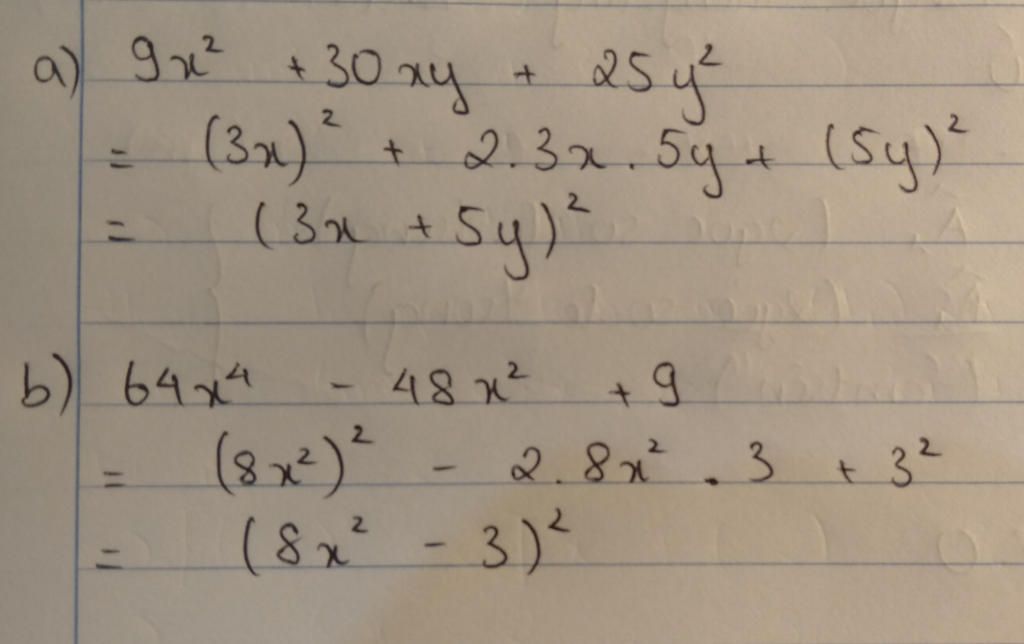 a) 9x² + 30xy + 25y²
= (3x)² + 2.3x.5y + (5y)²
= (3x + 5y)²
b) 64x⁴ - 48x² + 9
= (8x²)² - 2.8x².3 + 3²
= (8x² - 3)²